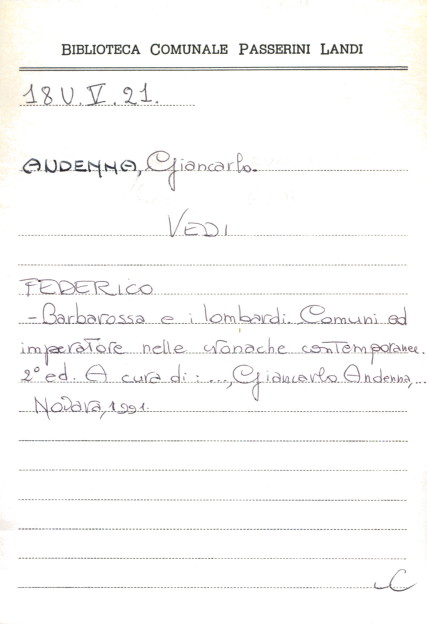 BIBLIOTECA COMUNALE PASSERINI LANDI
18 U.V.21.
ANDENNA, Giancarlo.
VEDI
FEDERICO
- Barbarossa e i lombardi. Comuni ed
imperatore nelle cronache contemporanee.
2° ed. A cura di: ..., Giancarlo Andenna, ...
Novara, 1991.
C